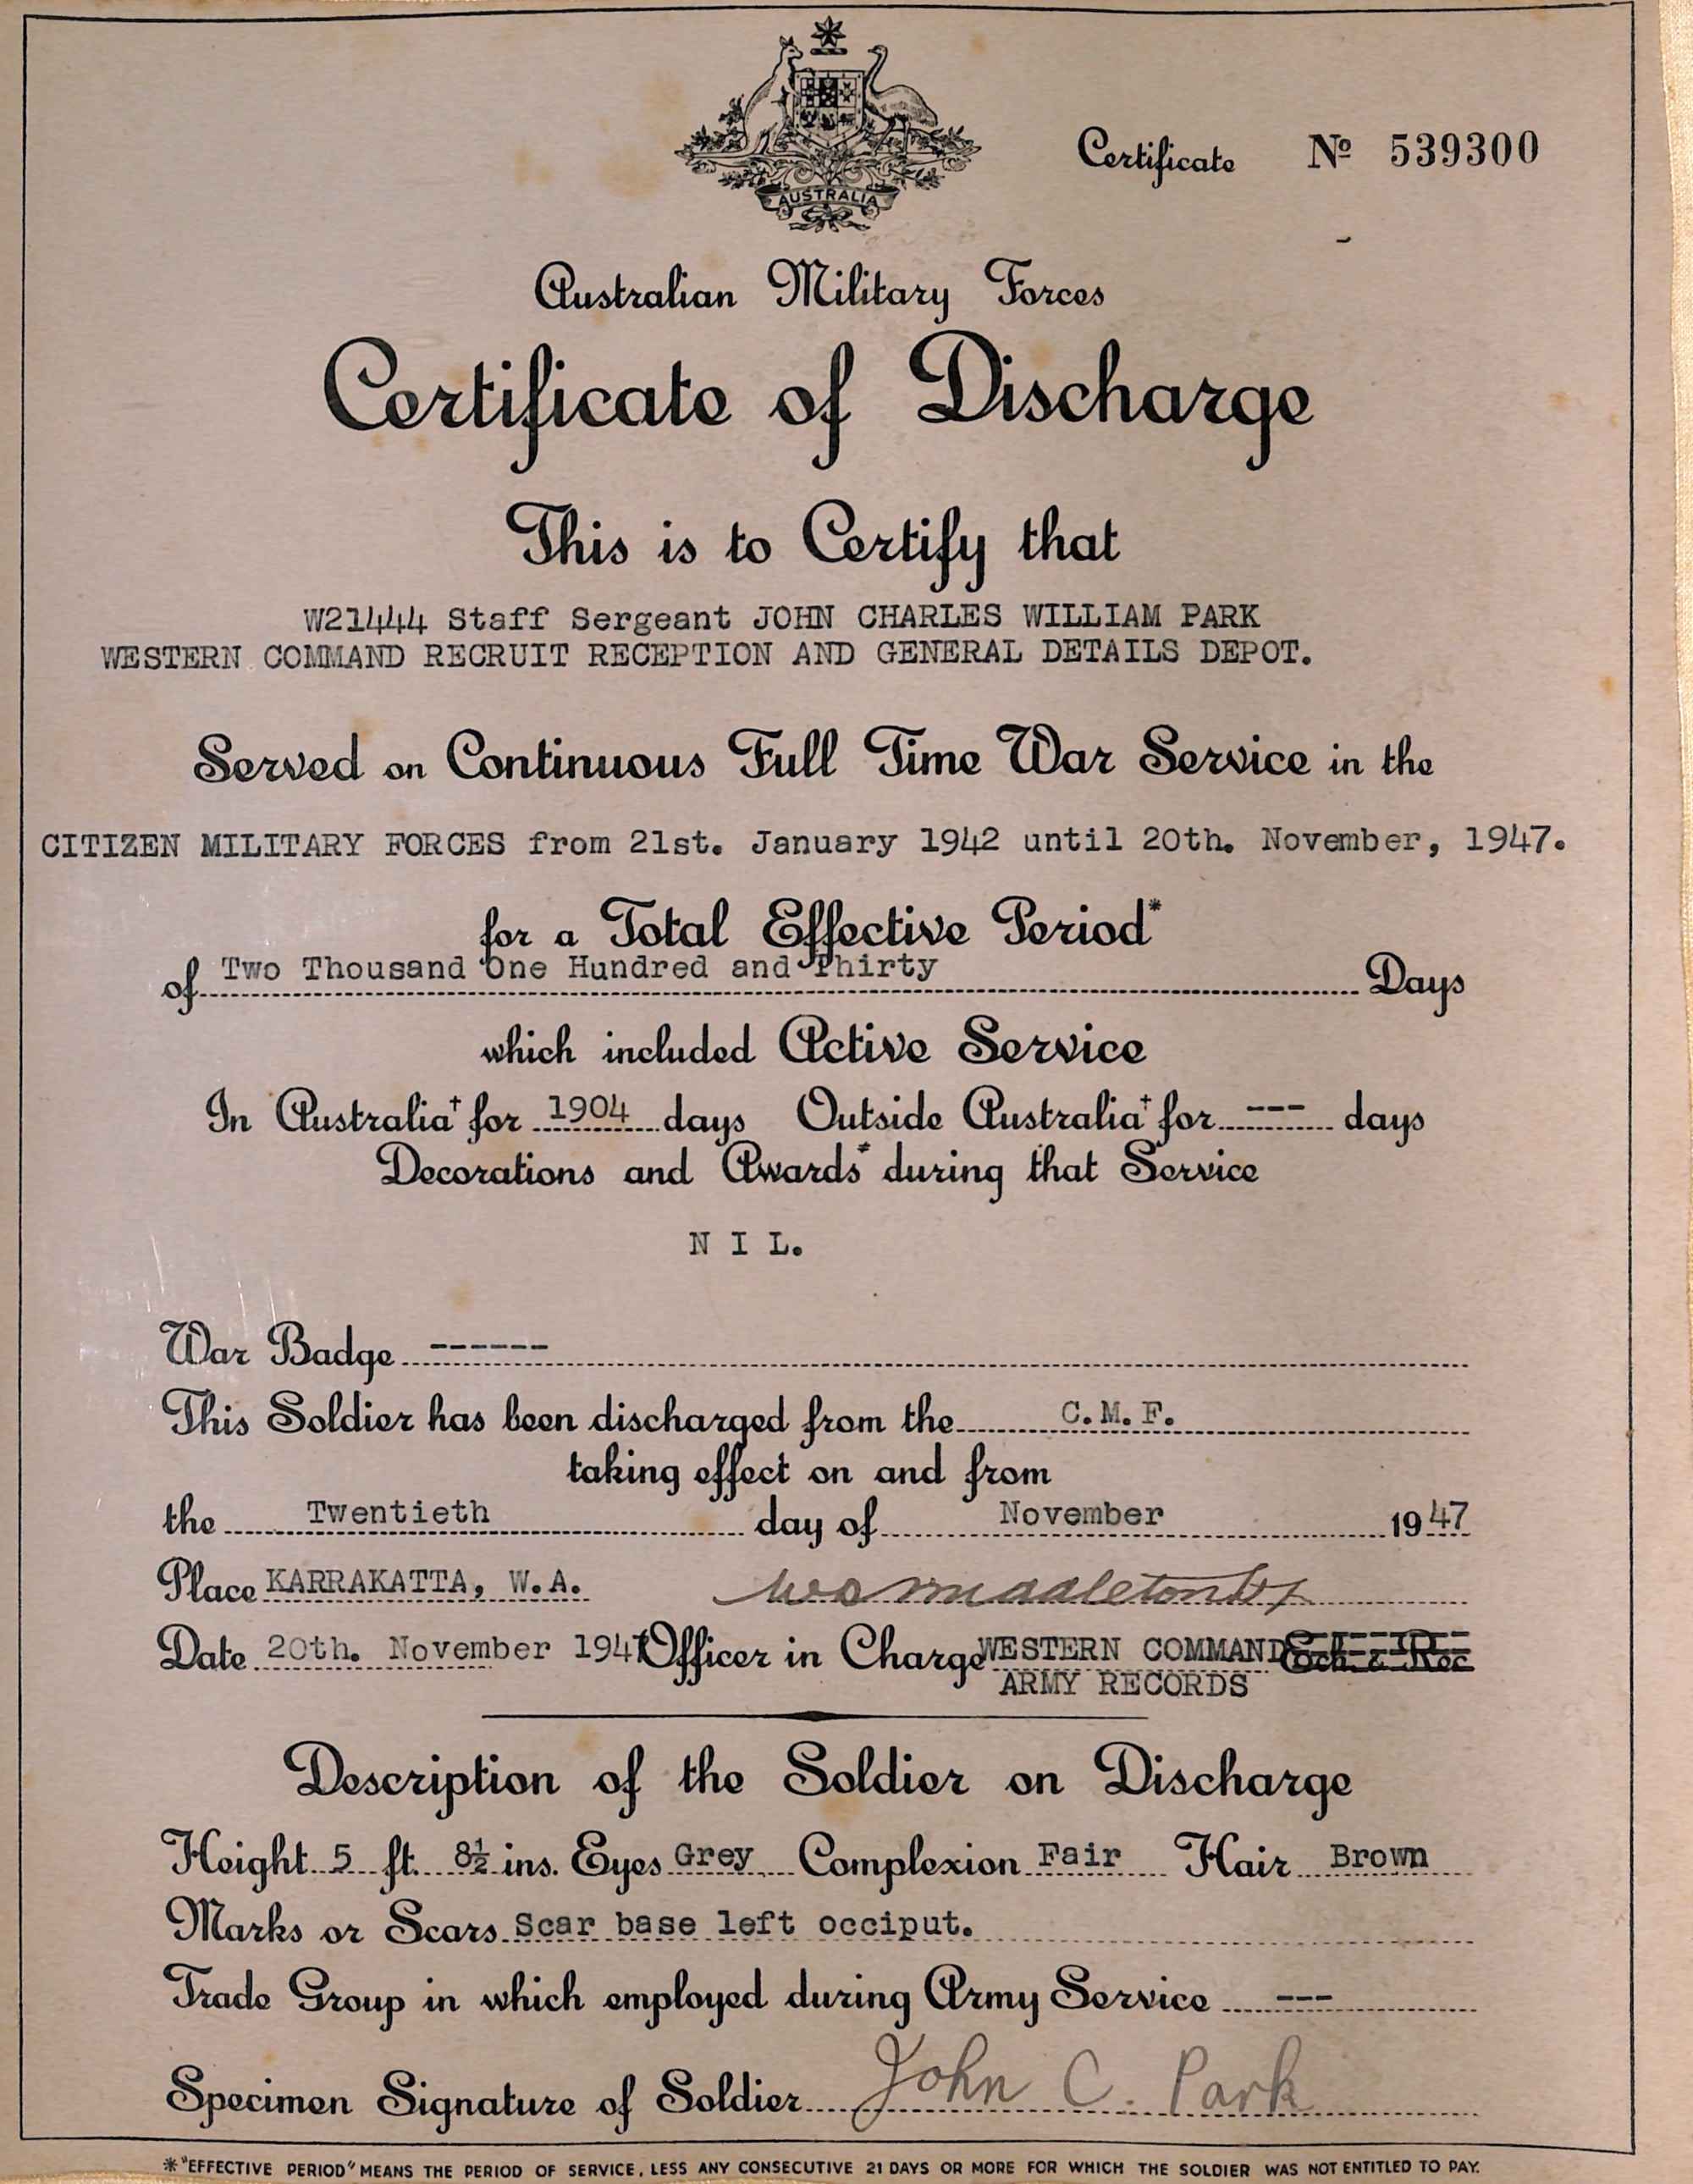 AUSTRALIA
Certificate Nº 539300
Australian Military Forces
Certificate of Discharge
This is to Certify that
W21444 Staff Sergeant JOHN CHARLES WILLIAM PARK
WESTERN COMMAND RECRUIT RECEPTION AND GENERAL DETAILS DEPOT.
Served on Continuous Full Time War Service in the
CITIZEN MILITARY FORCES from 21st. January 1942 until 20th. November, 1947.
for a Total Effective Period*
of Two Thousand One Hundred and Thirty Days
which included Active Service
In Australia† for 1904 days Outside Australia† for --- days
Decorations and Awards* during that Service
N I L.
War Badge ------
This Soldier has been discharged from the C.M.F.
taking effect on and from
the Twentieth day of November 1947
Place KARRAKATTA, W.A. Middleton
Date 20th. November 1947 Officer in Charge WESTERN COMMAND
ARMY RECORDS
Description of the Soldier on Discharge
Height 5 ft. 8½ ins. Eyes Grey Complexion Fair Hair Brown
Marks or Scars Scar base left occiput.
Trade Group in which employed during Army Service ---
Specimen Signature of Soldier John C. Park
*"EFFECTIVE PERIOD" MEANS THE PERIOD OF SERVICE, LESS ANY CONSECUTIVE 21 DAYS OR MORE FOR WHICH THE SOLDIER WAS NOT ENTITLED TO PAY.